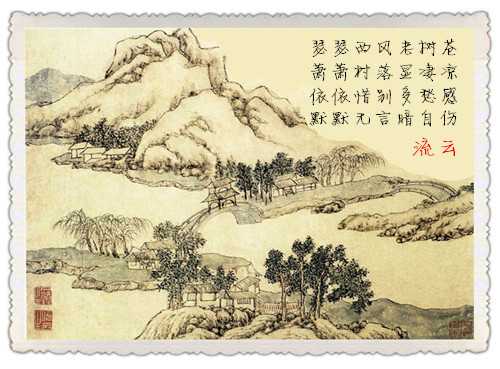 瑟瑟西风老树苍
萧萧村落显凄凉
依依惜别多愁感
默默无言暗自伤
流云